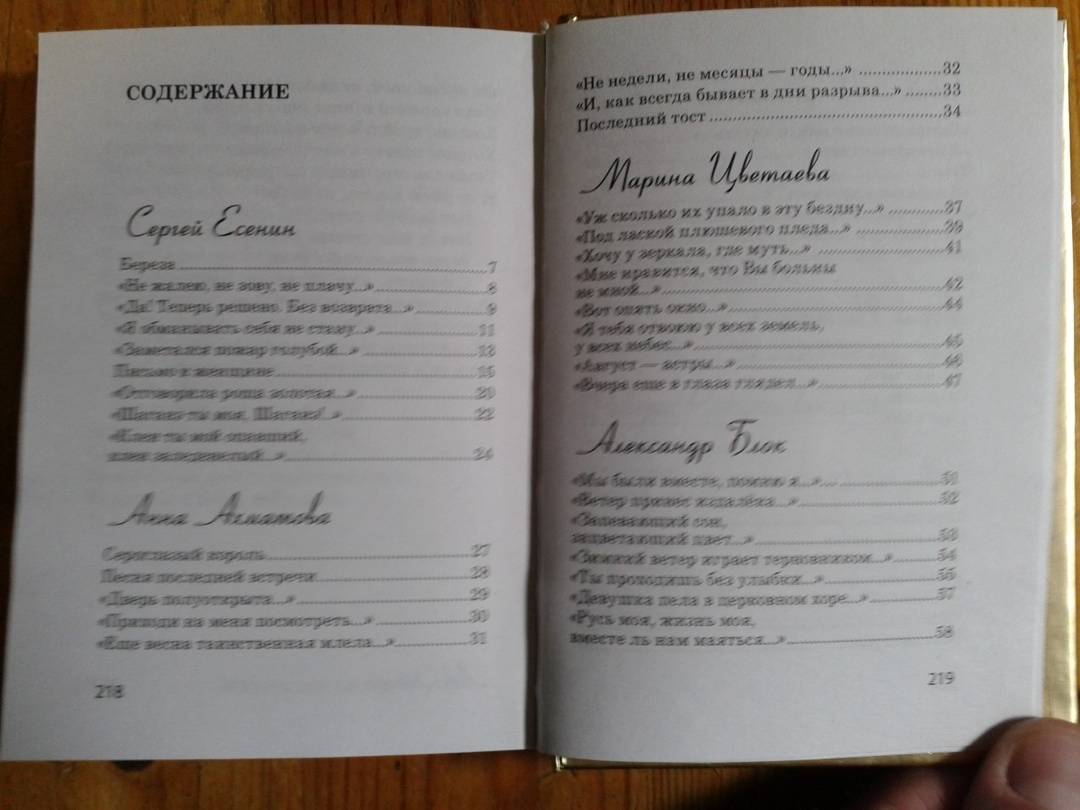 СОДЕРЖАНИЕ
Сергей Есенин
Береза 7
«Не жалею, не зову, не плачу...» 8
«Да! Теперь решено. Без возврата...» 9
«Я обманывать себя не стану...» 11
«Заметался пожар голубой...» 13
Письмо к женщине 15
«Отговорила роща золотая...» 20
«Шаганэ ты моя, Шаганэ!..» 22
«Клен ты мой опавший,
клен заледенелый...» 24
Анна Ахматова
Сероглазый король 27
Песня последней встречи 28
«Дверь полуоткрыта...» 29
«Приходи на меня посмотреть...» 30
«Еще весна таинственная млела...» 31
218
«Не недели, не месяцы — годы...» 32
«И, как всегда бывает в дни разрыва...» 33
Последний тост 34
Марина Цветаева
«Уж сколько их упало в эту бездну...» 37
«Под лаской плюшевого пледа...» 39
«Хочу у зеркала, где муть...» 41
«Мне нравится, что Вы больны
не мной...» 42
«Вот опять окно...» 44
«Я тебя отвоюю у всех земель,
у всех небес...» 45
«Август — астры...» 46
«Вчера еще в глаза глядел...» 47
Александр Блок
«Мы были вместе, помню я...» 51
«Ветер принес издалёка...» 52
«Запевающий сон,
зацветающий цвет...» 53
«Зимний ветер играет терновником...» 54
«Ты проходишь без улыбки...» 55
«Девушка пела в церковном хоре...» 57
«Русь моя, жизнь моя,
вместе ль нам маяться...» 58
219